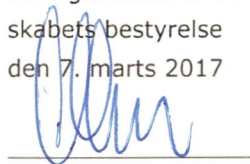 skabets bestyrelse
den 7. marts 2017